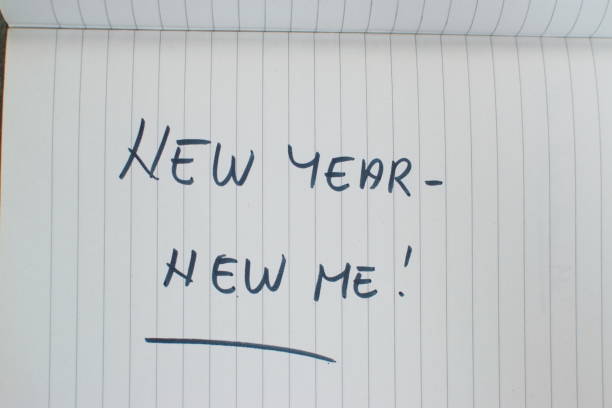 NEW YEAR-
NEW ME!